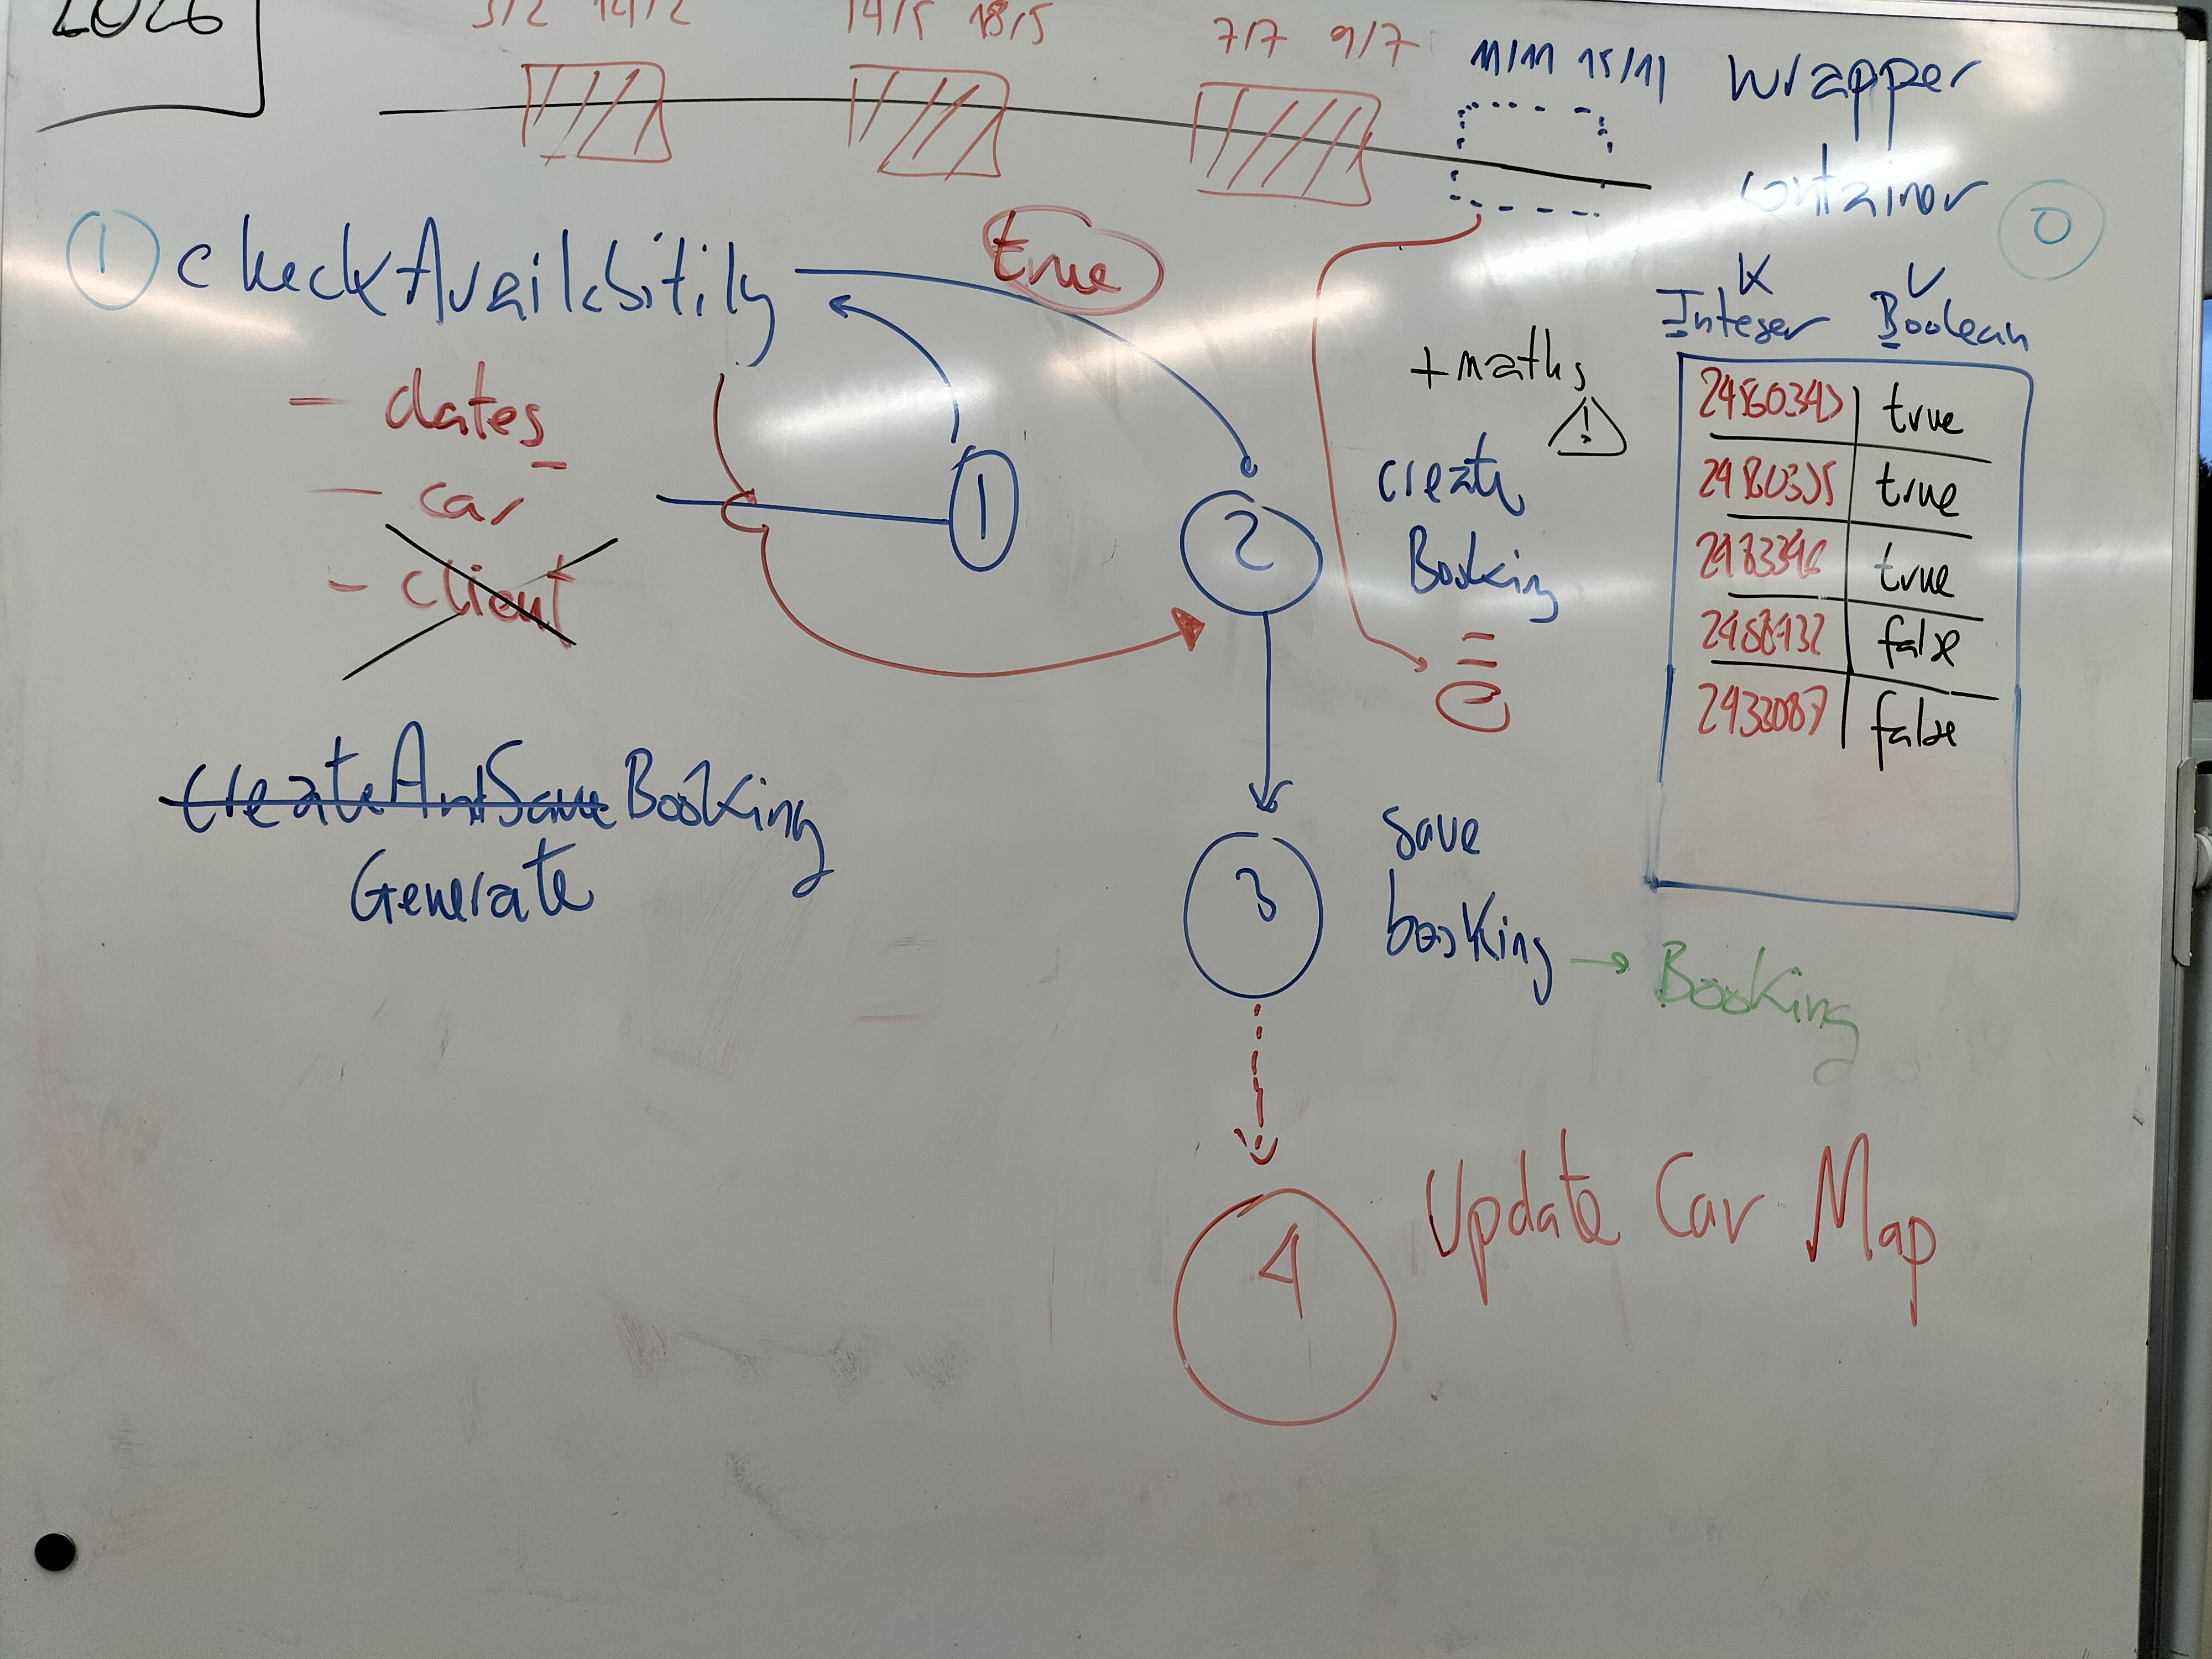 2026
3/2 14/2 14/5 18/5 7/7 9/7 11/11 15/11
wrapper
container
0
1 checkAvailability
true
K V
Integer Boolean
- dates
- car
- client
+ maths
!
1
2
create
Booking
true
true
true
false
2433087 false
createAndSaveBooking
Generate
3
save
booking → Booking
4
Update Car Map